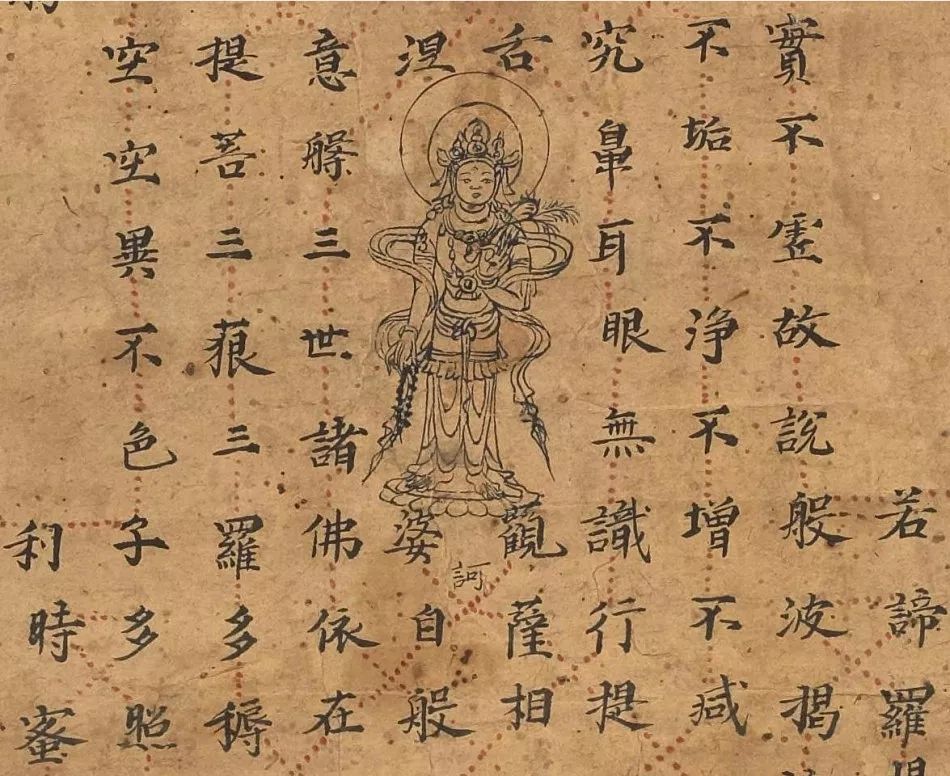 若諦羅
實不虛故說般波揭
不垢不淨不增不減
究鼻耳眼無識行提
舌觀薩相
訶
涅婆自般
意三世諸佛依在
提菩三藐三羅多耨
空空異不色子多照
利時蜜